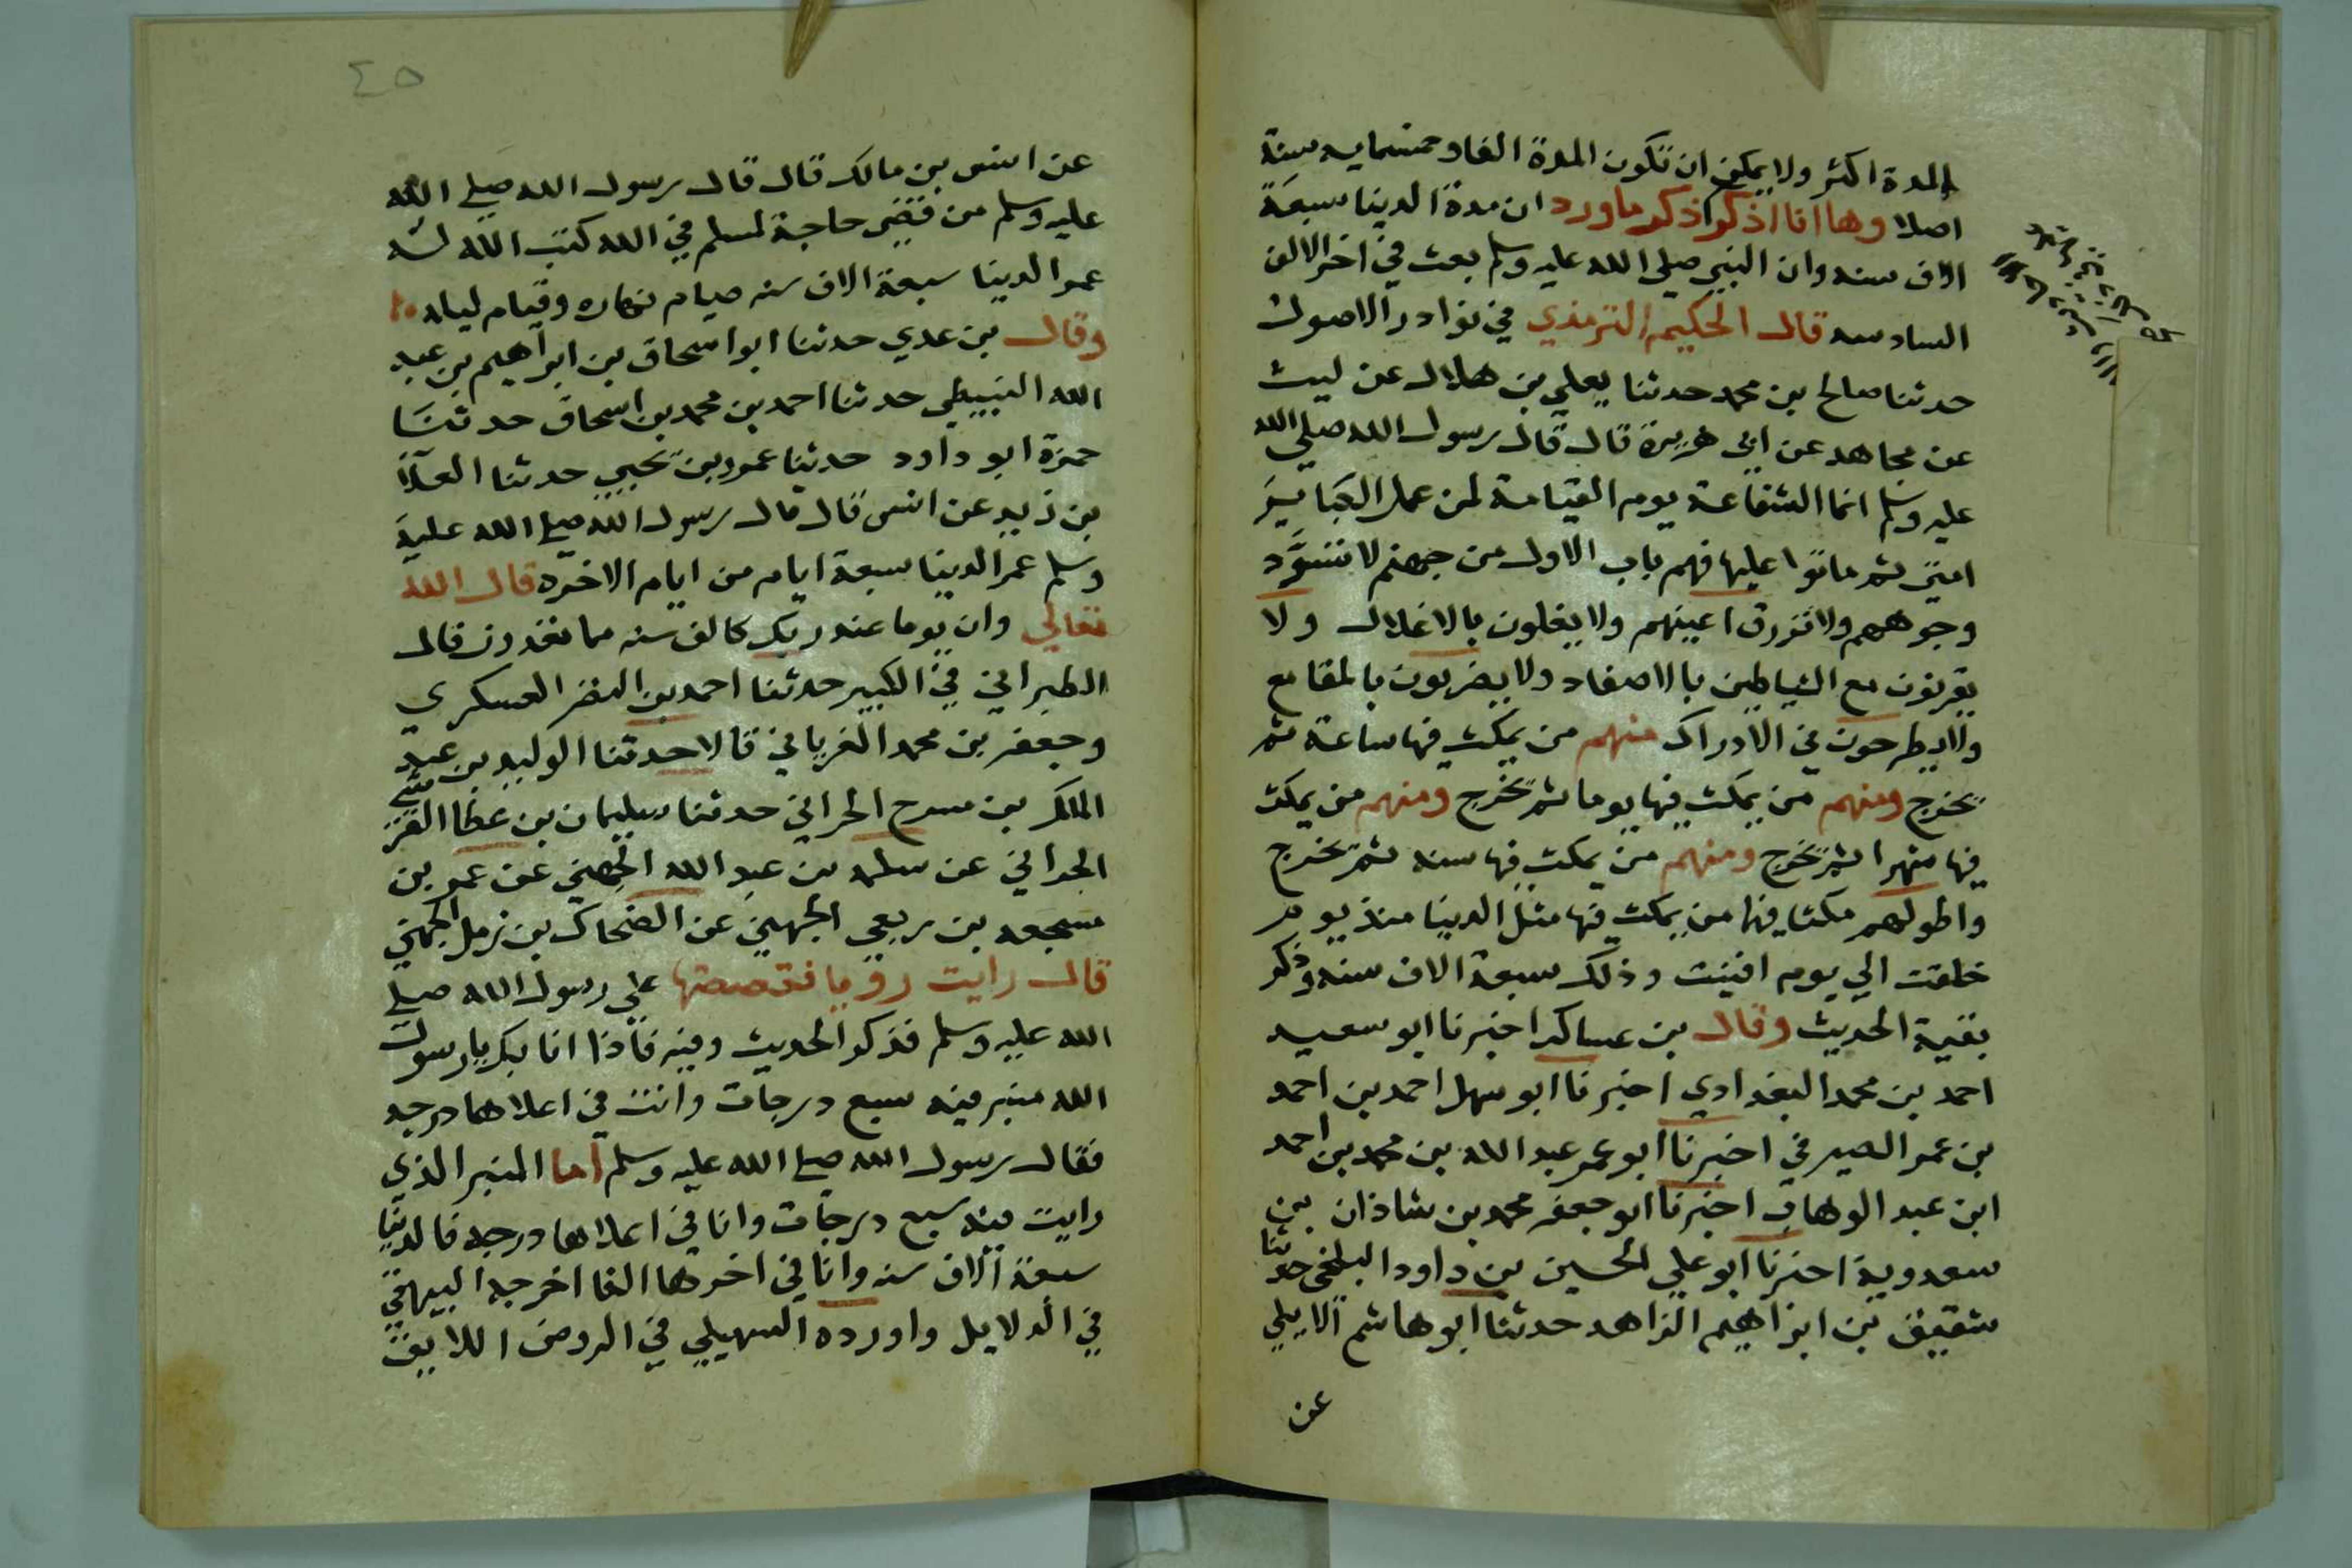 المدة اكثر ولا يمكن ان تكون المدة الفا وخمسمايه سنة
اصلا وها انا اذكر اذكر ما ورد ان مدة الدنيا سبعة
الاف سنه وان النبي صلى الله عليه وسلم بعث في اخر الالف
السادسه قال الحكيم الترمذي في نوادر الاصول
حدثنا صالح بن محمد حدثنا يعلي بن هلال عن ليث
عن مجاهد عن ابي هريرة قال قال رسول الله صلى الله
عليه وسلم انما الشفاعة يوم القيامة لمن عمل الكبا ير
امتي ثم ماتوا عليها فهم باب الاول من جهنم لا تسود
وجوههم ولا تزرق اعينهم ولا يغلون بالاغلال ولا
يقرنون مع الشياطين بالاصفاد ولا يضربون بالمقامع
ولا يطرحون في الادراك منهم من يمكث فيها ساعة ثم
يخرج ومنهم من يمكث فيها يوما ثم يخرج ومنهم من يمكث
فيها شهرا ثم يخرج ومنهم من يمكث فيها سنه ثم يخرج
واطولهم مكثا فيها من يمكث فيها مثل الدنيا منذ يوم
خلقت الي يوم افنيت وذلك سبعة الاف سنه وذكر
بقية الحديث وقال بن عساكر اخبرنا ابو سعيد
احمد بن محمد البغدادي اخبرنا ابو سهل احمد بن احمد
بن عمر الصيرفي اخبرنا ابو عمر عبد الله بن محمد بن احمد
ابن عبد الوهاب اخبرنا ابو جعفر محمد بن شاذان بن
سعدوية اخبرنا ابو علي الحسين بن داود البلخي حدثنا
شقيق بن ابراهيم الزاهد حدثنا ابو هاشم الايلي
عن
٤٥
عن انس بن مالك قال قال رسول الله صلي الله
عليه وسلم من قضى حاجة لمسلم في الله كتب الله له
عمر الدنيا سبعة الاف سنه صيام نهاره وقيام ليله
وقال بن عدي حدثنا ابو اسحاق بن ابراهيم بن عبد
الله النبيطي حدثنا احمد بن محمد بن اسحاق حدثنا
حمزة ابو داود حدثنا عمر بن يحيي حدثنا العلا
بن زيد عن انس قال قال رسول الله صلي الله عليه
وسلم عمر الدنيا سبعة ايام من ايام الاخره قال الله
تعالي وان يوما عند ربك كالف سنه مما تعدون قال
الطبراني في الكبير حدثنا احمد بن النضر العسكري
وجعفر بن محمد الغرياني قالا حدثنا الوليد بن عبد
الملك بن سرح الحراني حدثنا سليمان بن عطا القرشي
الحراني عن سلمه بن عبد الله الجهني عن عمر بن
مسجعه بن ربعي الجهني عن الضحاك بن زمل الجهني
قال رايت رويا فقصصتها علي رسول الله صلي
الله عليه وسلم فذكر الحديث وفيه فاذا انا بك يا رسول
الله منبر فيه سبع درجات وانت في اعلاهما درجه
فقال رسول الله صلي الله عليه وسلم اما المنبر الذي
رايت فيه سبع درجات وانا في اعلاها درجه فالدنيا
سبعة الاف سنه وانا في اخرها الفا اخرجه البيهقي
في الدلايل واورده السهيلي في الروض اللايف